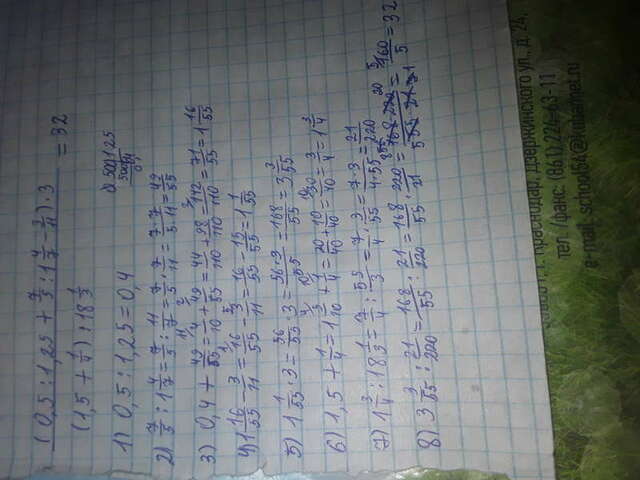 (0,5 : 1,25 + 7/5 : 1 4/7 - 3/11) · 3 / (1,5 + 1/4) : 18 1/3 = 32
1) 0,5 : 1,25 = 0,4
2) 7/5 : 1 4/7 = 7/5 : 11/7 = 7/5 · 7/11 = 7·7/5·11 = 49/55
3) 0,4 + 49/55 = 4/10 + 49/55 = 44/110 + 98/110 = 142/110 = 71/55 = 1 16/55
4) 1 16/55 - 3/11 = 1 16/55 - 3/11 = 16/55 - 15/55 = 1 1/55
5) 1 1/55 · 3 = 56/55 · 3 = 56·3/55 = 168/55 = 3 3/55
6) 1,5 + 1/4 = 1 5/10 + 1/4 = 20/40 + 10/40 = 30/40 = 3/4 = 1 3/4
7) 1 3/4 : 18 1/3 = 7/4 : 55/3 = 7/4 · 3/55 = 7·3/4·55 = 21/220
8) 3 3/55 : 21/220 = 168/55 : 21/220 = 168/55 · 220/21 = 168·220/55·21 = 160/5 = 32
г. Краснодар, Дзержинского ул., д. 24,
тел. /факс: (861) 224-63-11
e-mail: school54@kubannet.ru